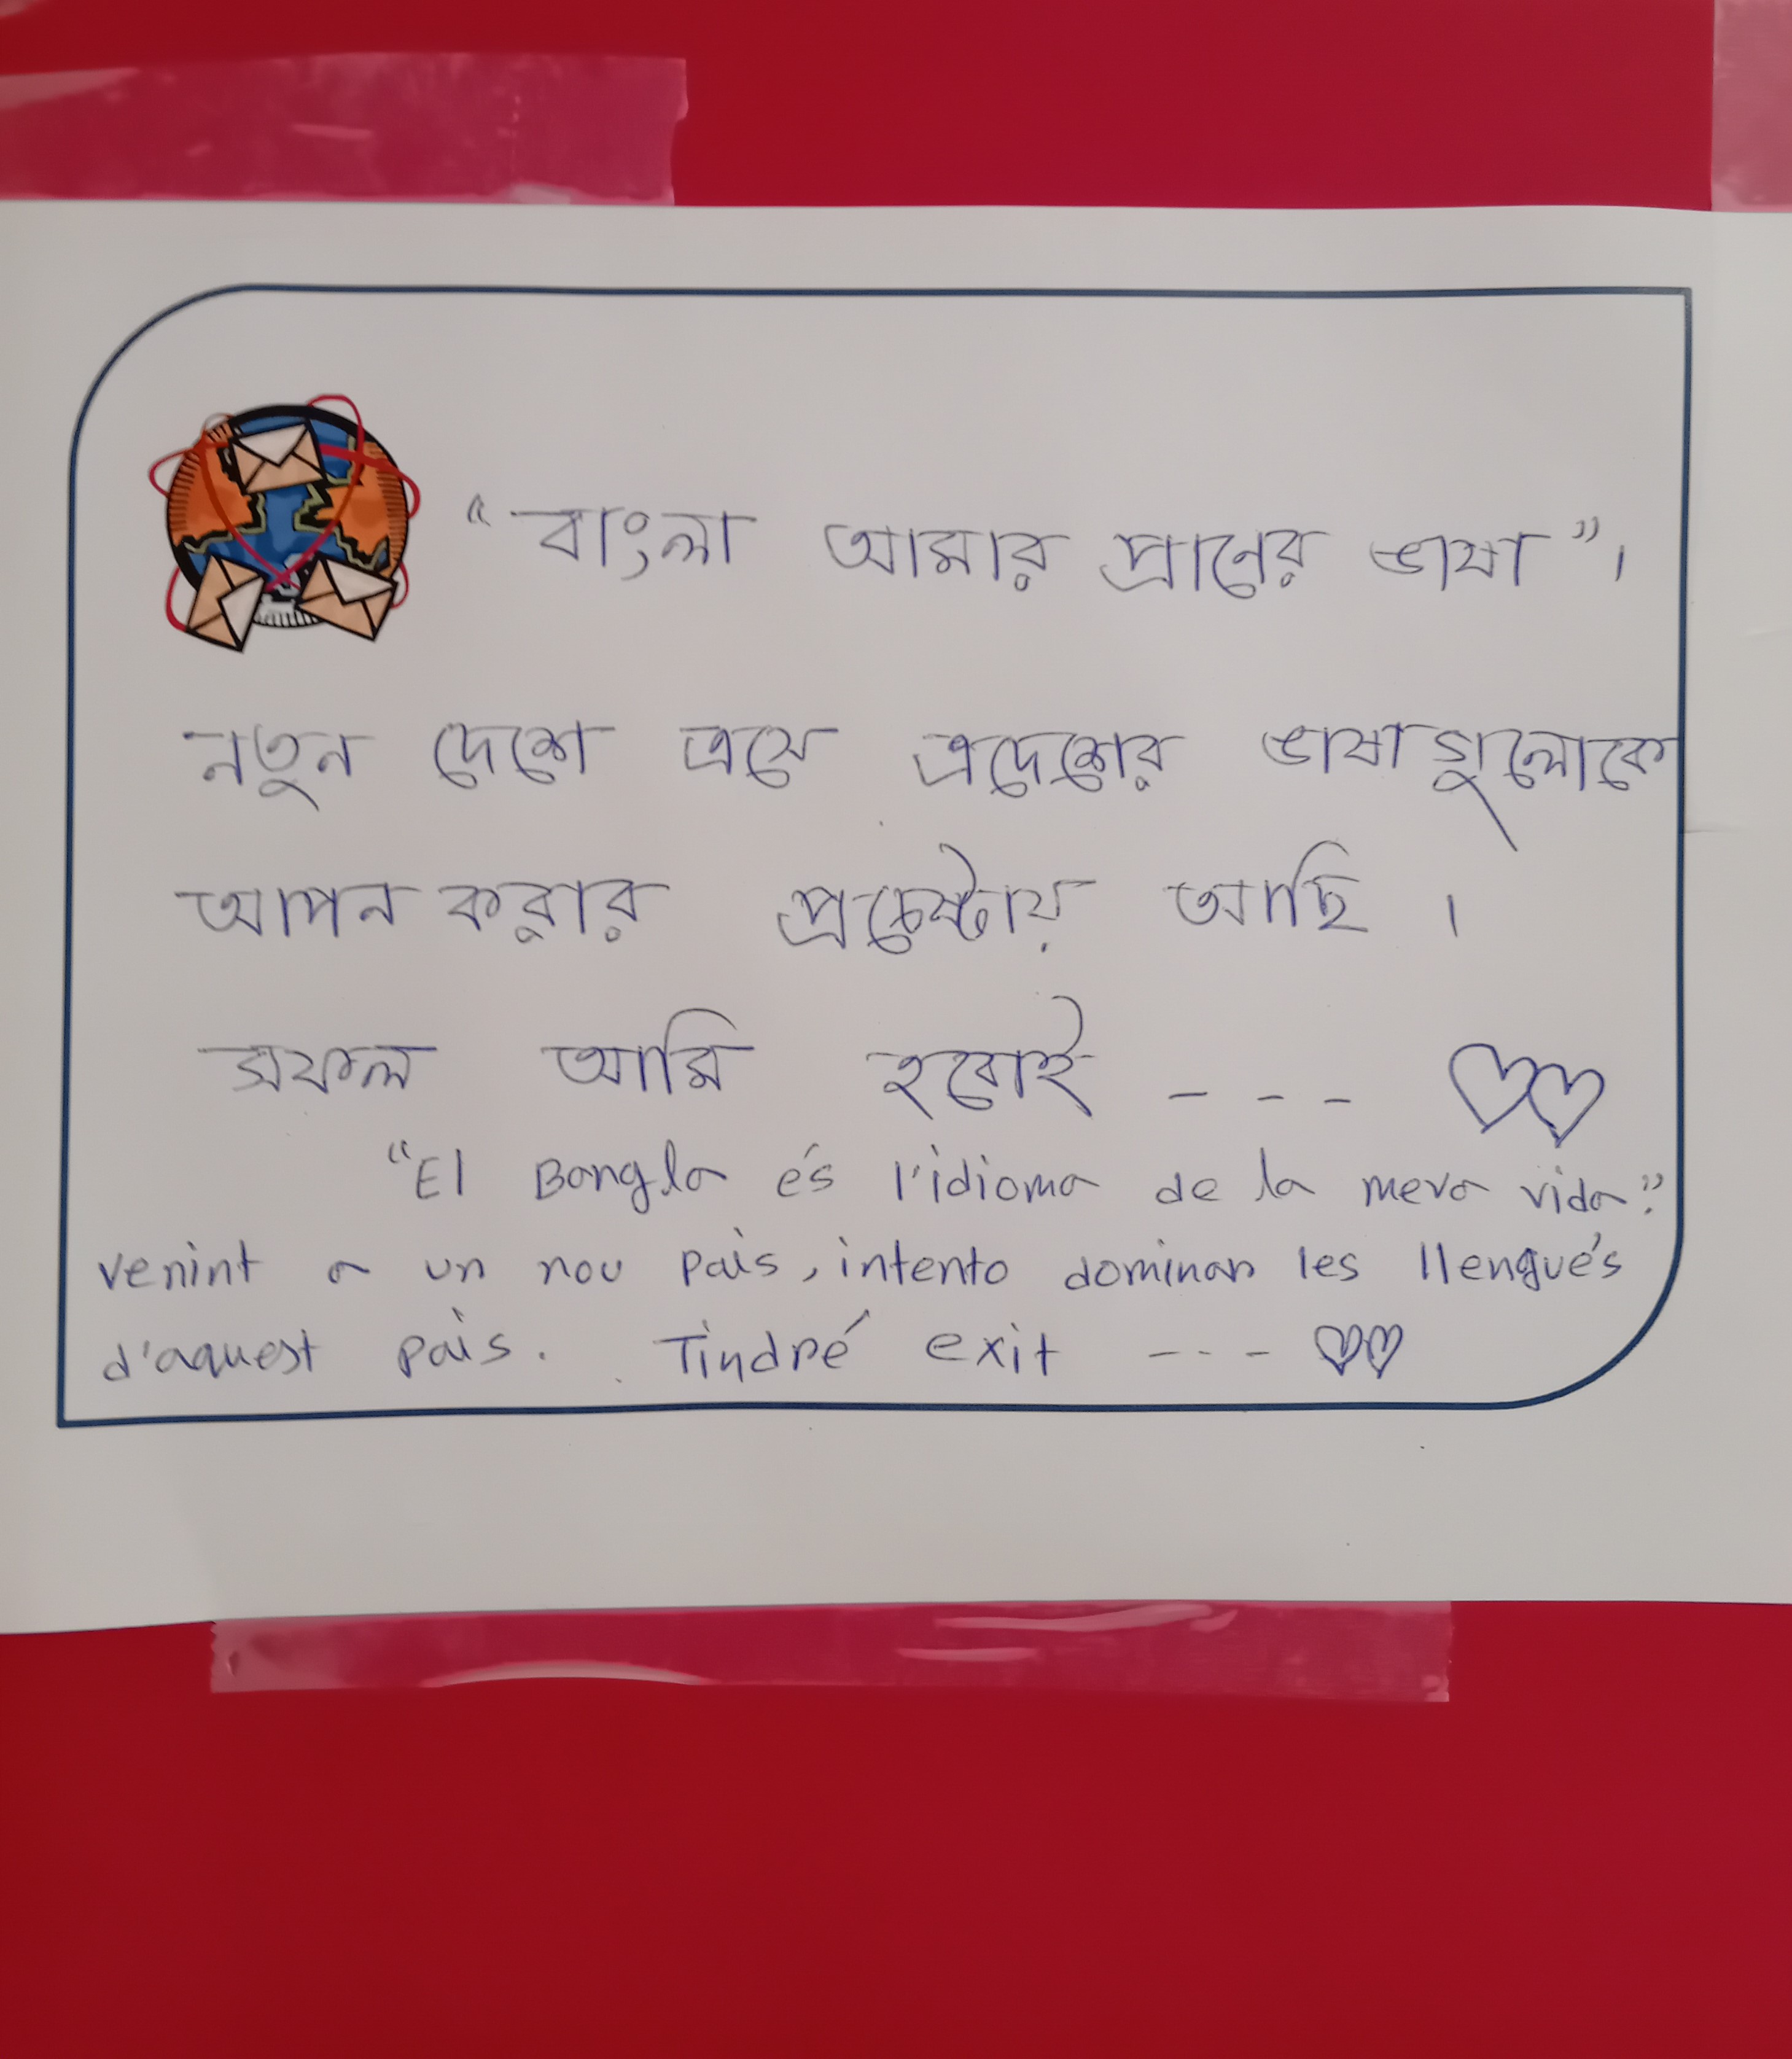 “বাংলা আমার প্রানের ভাষা”।
নতুন দেশে এসে এদেশের ভাষাগুলোকে
আপন করার প্রচেষ্টায় আছি ।
সফল আমি হবোই - - -
“El Bangla és l'idioma de la meva vida”.
venint a un nou país, intento dominar les llengués
d'aquest país. Tindré exit - - -